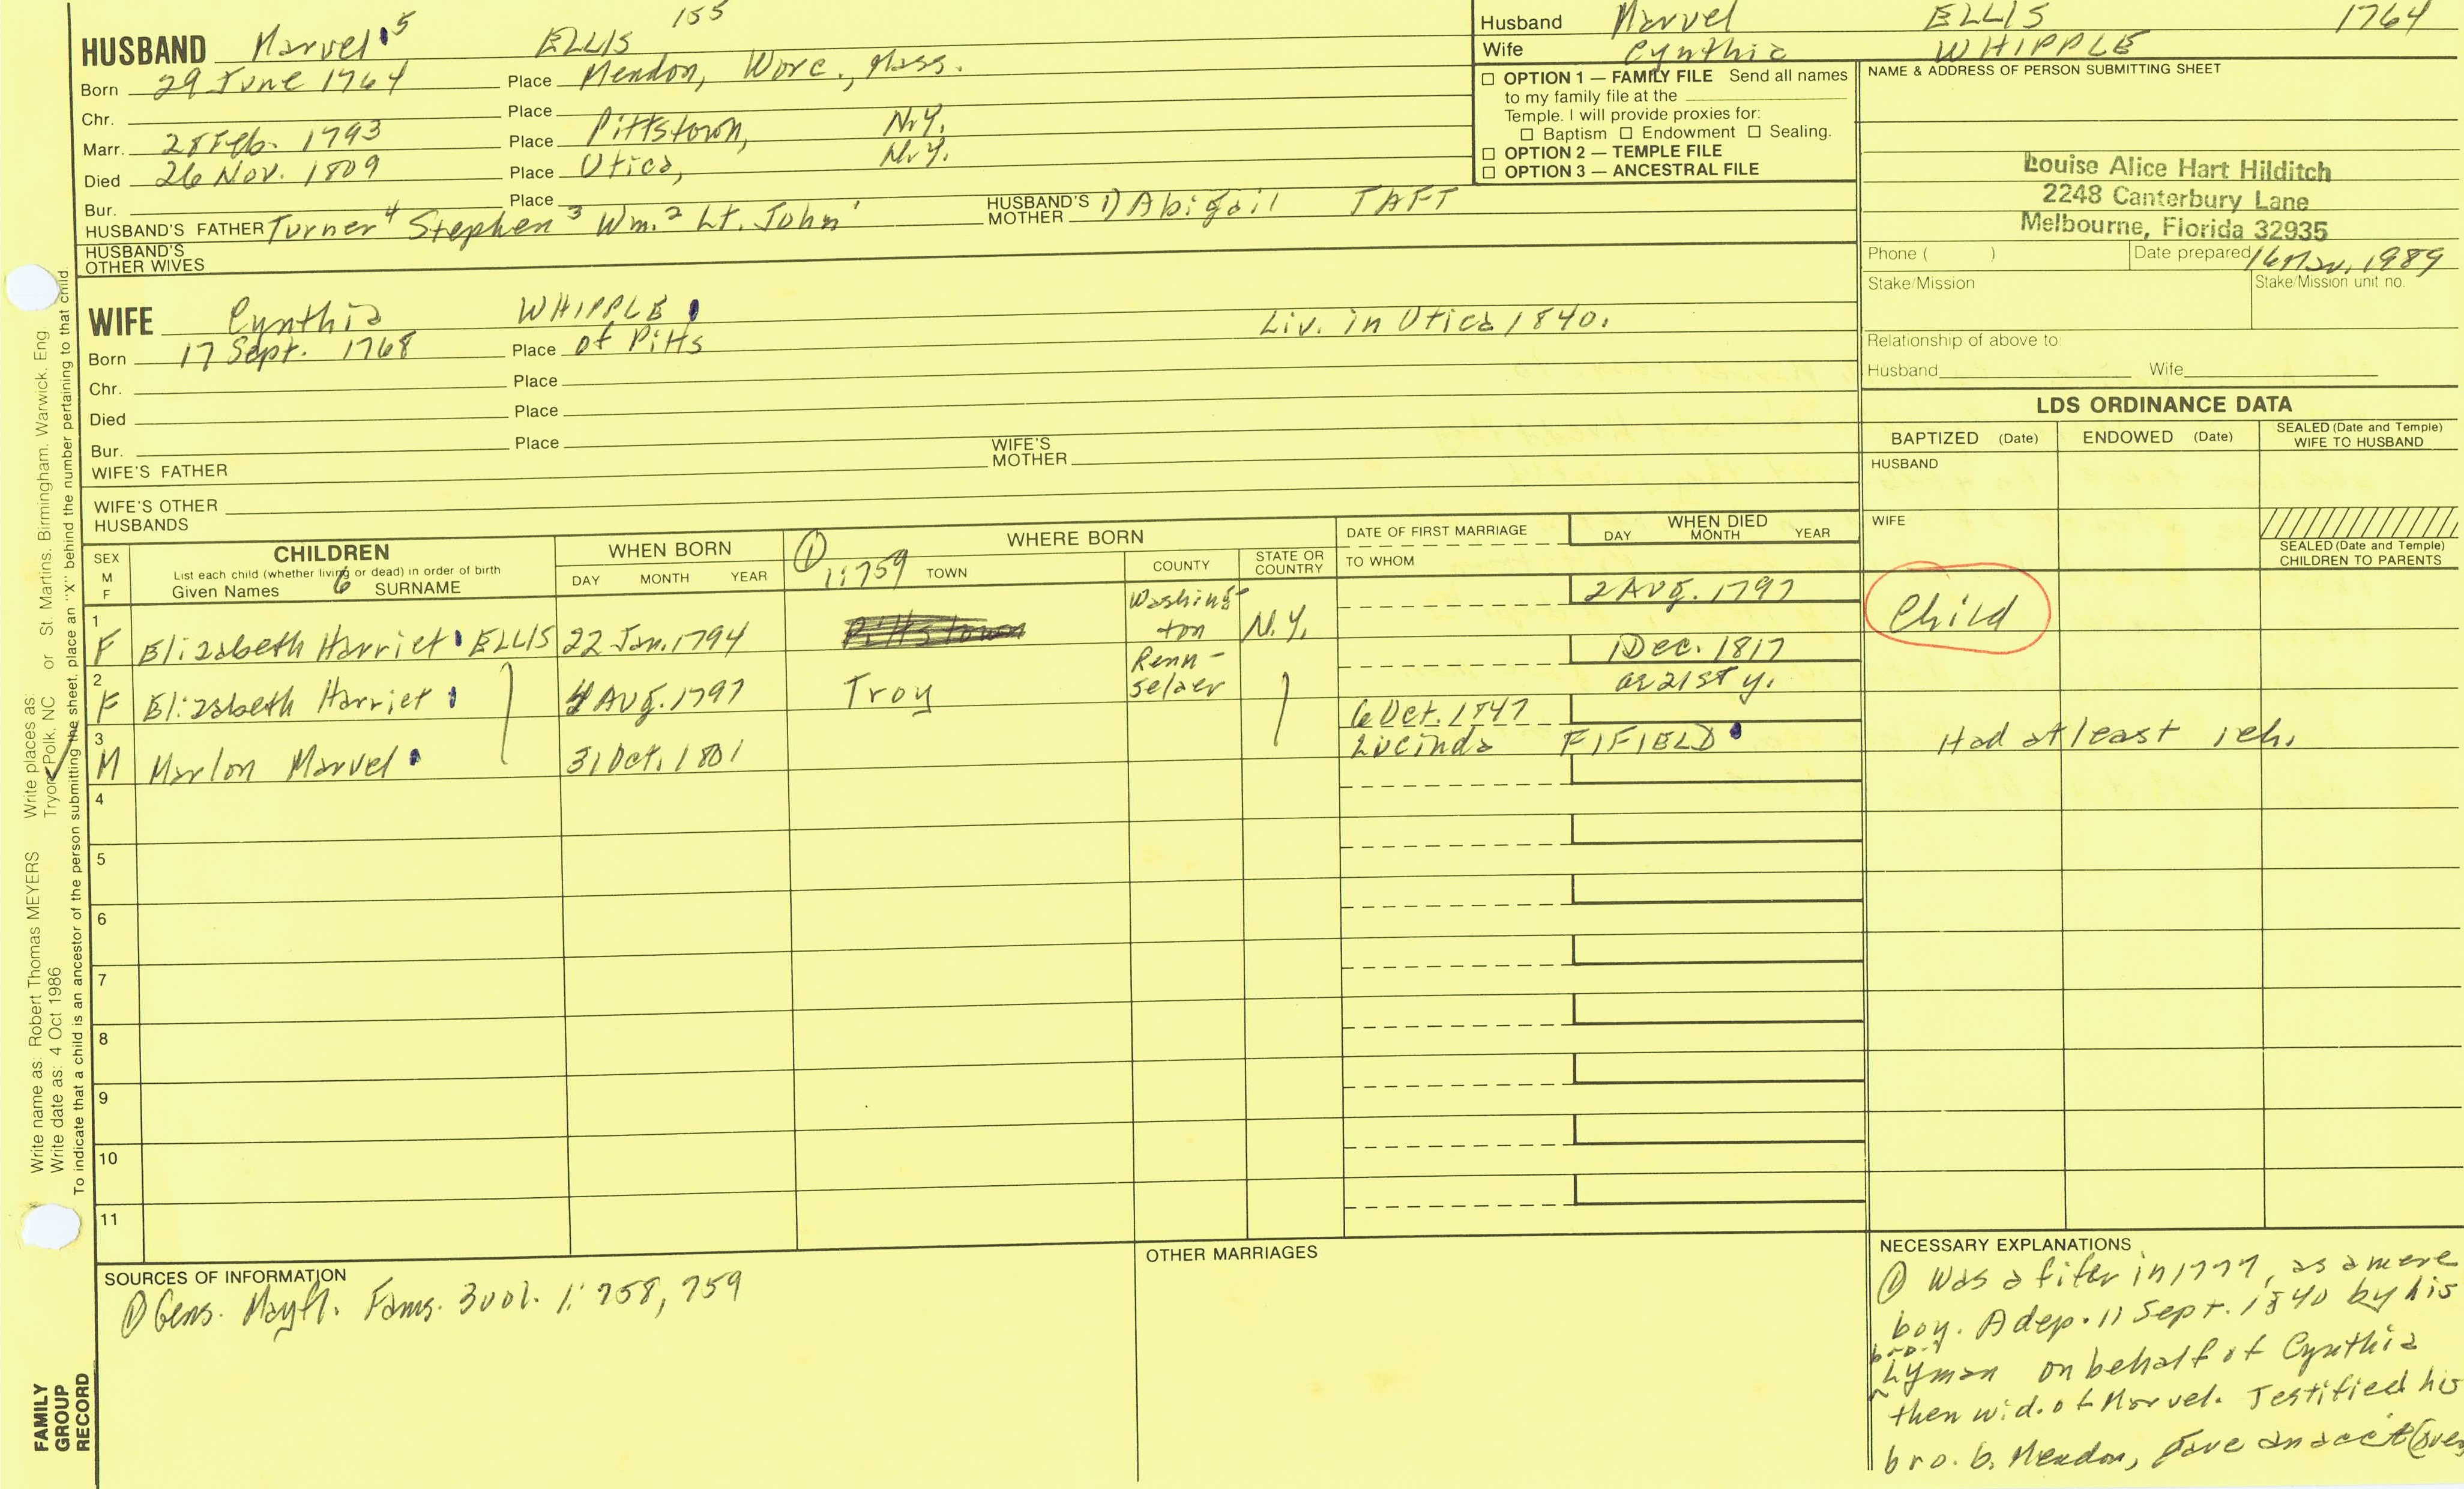 HUSBAND Marvel 5 ELLIS 155
Born 29 June 1764 Place Mendon, Worc., Mass.
Chr. Place
Marr. 28 Feb. 1793 Place Pittstown, N.Y.
Died 26 Nov. 1809 Place Utica, N.Y.
Bur. Place
HUSBAND'S FATHER Turner 4 Stephen 3 Wm. 2 Lt. John 1 HUSBAND'S MOTHER 1) Abigail TAFT
HUSBAND'S OTHER WIVES
Husband Marvel ELLIS 1764
Wife Cynthia WHIPPLE
☐ OPTION 1 — FAMILY FILE Send all names
to my family file at the
Temple. I will provide proxies for:
☐ Baptism ☐ Endowment ☐ Sealing.
☐ OPTION 2 — TEMPLE FILE
☐ OPTION 3 — ANCESTRAL FILE
NAME & ADDRESS OF PERSON SUBMITTING SHEET
Louise Alice Hart Hilditch
2248 Canterbury Lane
Melbourne, Florida 32935
Phone ( ) Date prepared 16 Mar. 1989
Stake/Mission Stake/Mission unit no.
Relationship of above to:
Husband Wife
WIFE Cynthia WHIPPLE Liv. in Utica 1840.
Born 17 Sept. 1768 Place of Pitts
Chr. Place
Died Place
Bur. Place
WIFE'S FATHER WIFE'S MOTHER
WIFE'S OTHER HUSBANDS
LDS ORDINANCE DATA
BAPTIZED (Date) ENDOWED (Date) SEALED (Date and Temple) WIFE TO HUSBAND
HUSBAND
WIFE
SEALED (Date and Temple) CHILDREN TO PARENTS
SEX M F
CHILDREN
List each child (whether living or dead) in order of birth
Given Names 6 SURNAME
WHEN BORN
DAY MONTH YEAR
① 1:759
WHERE BORN
TOWN COUNTY STATE OR COUNTRY
DATE OF FIRST MARRIAGE
TO WHOM
WHEN DIED
DAY MONTH YEAR
1 F Elizabeth Harriet ELLIS 22 Jan. 1794 Pittstown Washington N.Y. 2 Aug. 1797 Child
2 F Elizabeth Harriet 4 Aug. 1797 Troy Rennselaer Dec. 1817 ae 21st y.
3 M Marlon Marvel 31 Oct. 1801 6 Oct. 1847 Lucinda FIFIELD Had at least 1 ch.
4
5
6
7
8
9
10
11
SOURCES OF INFORMATION
① Gens. Mayfl. Fams. 3 vol. 1: 758, 759
OTHER MARRIAGES
NECESSARY EXPLANATIONS
① Was a fifer in 1777, as a mere
boy. A dep. 11 Sept. 1840 by his
bro. Lyman on behalf of Cynthia
then wid. of Marvel. Testified his
bro. b. Mendon, gave an acct (over
Write name as: Robert Thomas MEYERS Write places as:
Write date as: 4 Oct 1986 Tryon, Polk, NC or St. Martins, Birmingham, Warwick, Eng
To indicate that a child is an ancestor of the person submitting the sheet, place an "X" behind the number pertaining to that child.
FAMILY
GROUP
RECORD